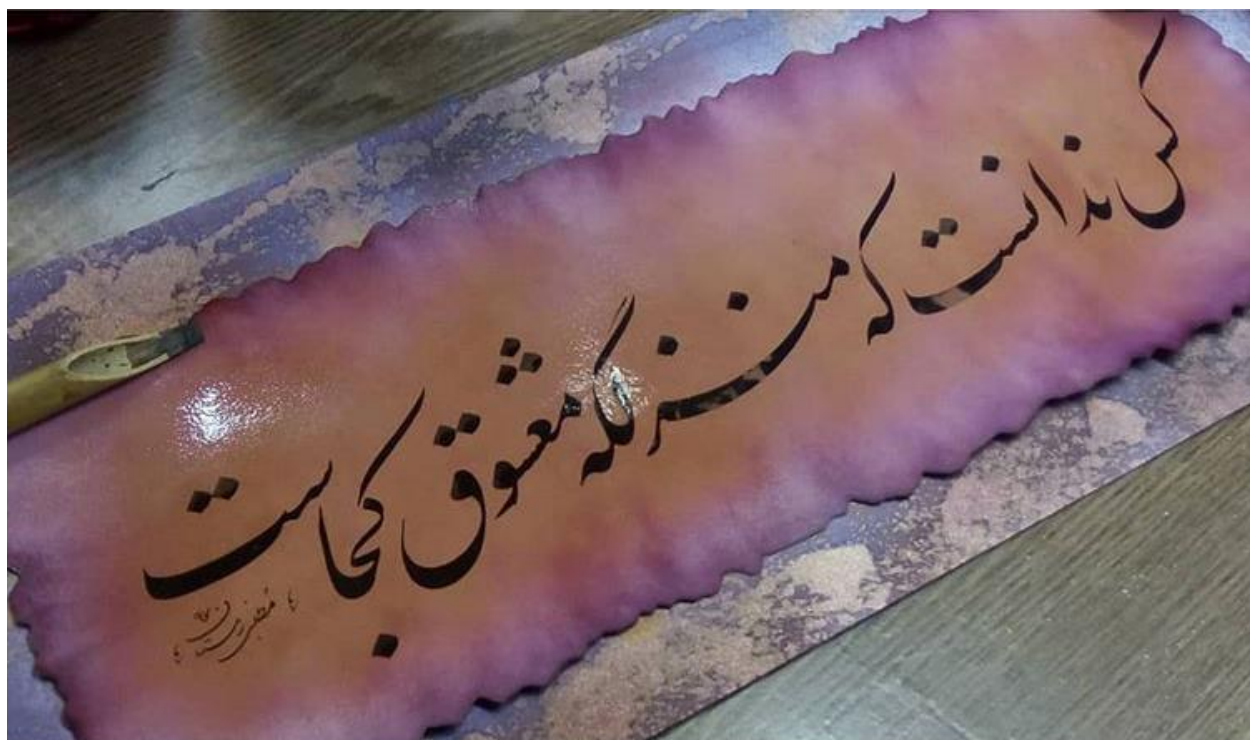 کس ندانست که منزلگه معشوق کجاست